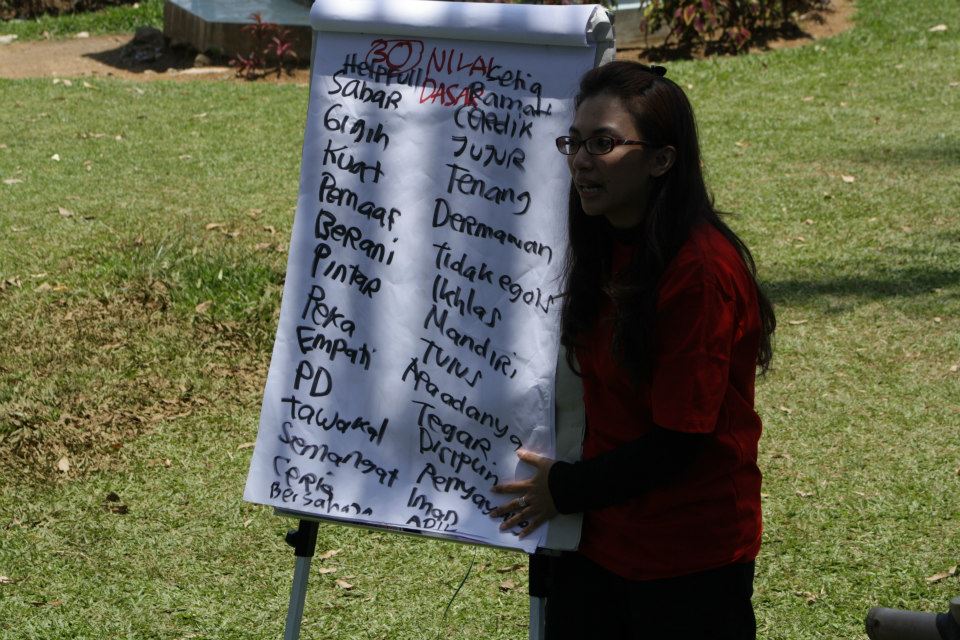 30 NILAI
DASAR
Helpfull
Sabar
Gigih
Kuat
Pemaaf
Berani
Pintar
Peka
Empati
PD
Tawakal
Semangat
Ceria
Bersahaja
Setia
Ramah
Cerdik
Jujur
Tenang
Dermawan
Tidak egois
Ikhlas
Mandiri
Tulus
Apaadanya
Tegar
Disiplin
Penyayang
Iman
Adil